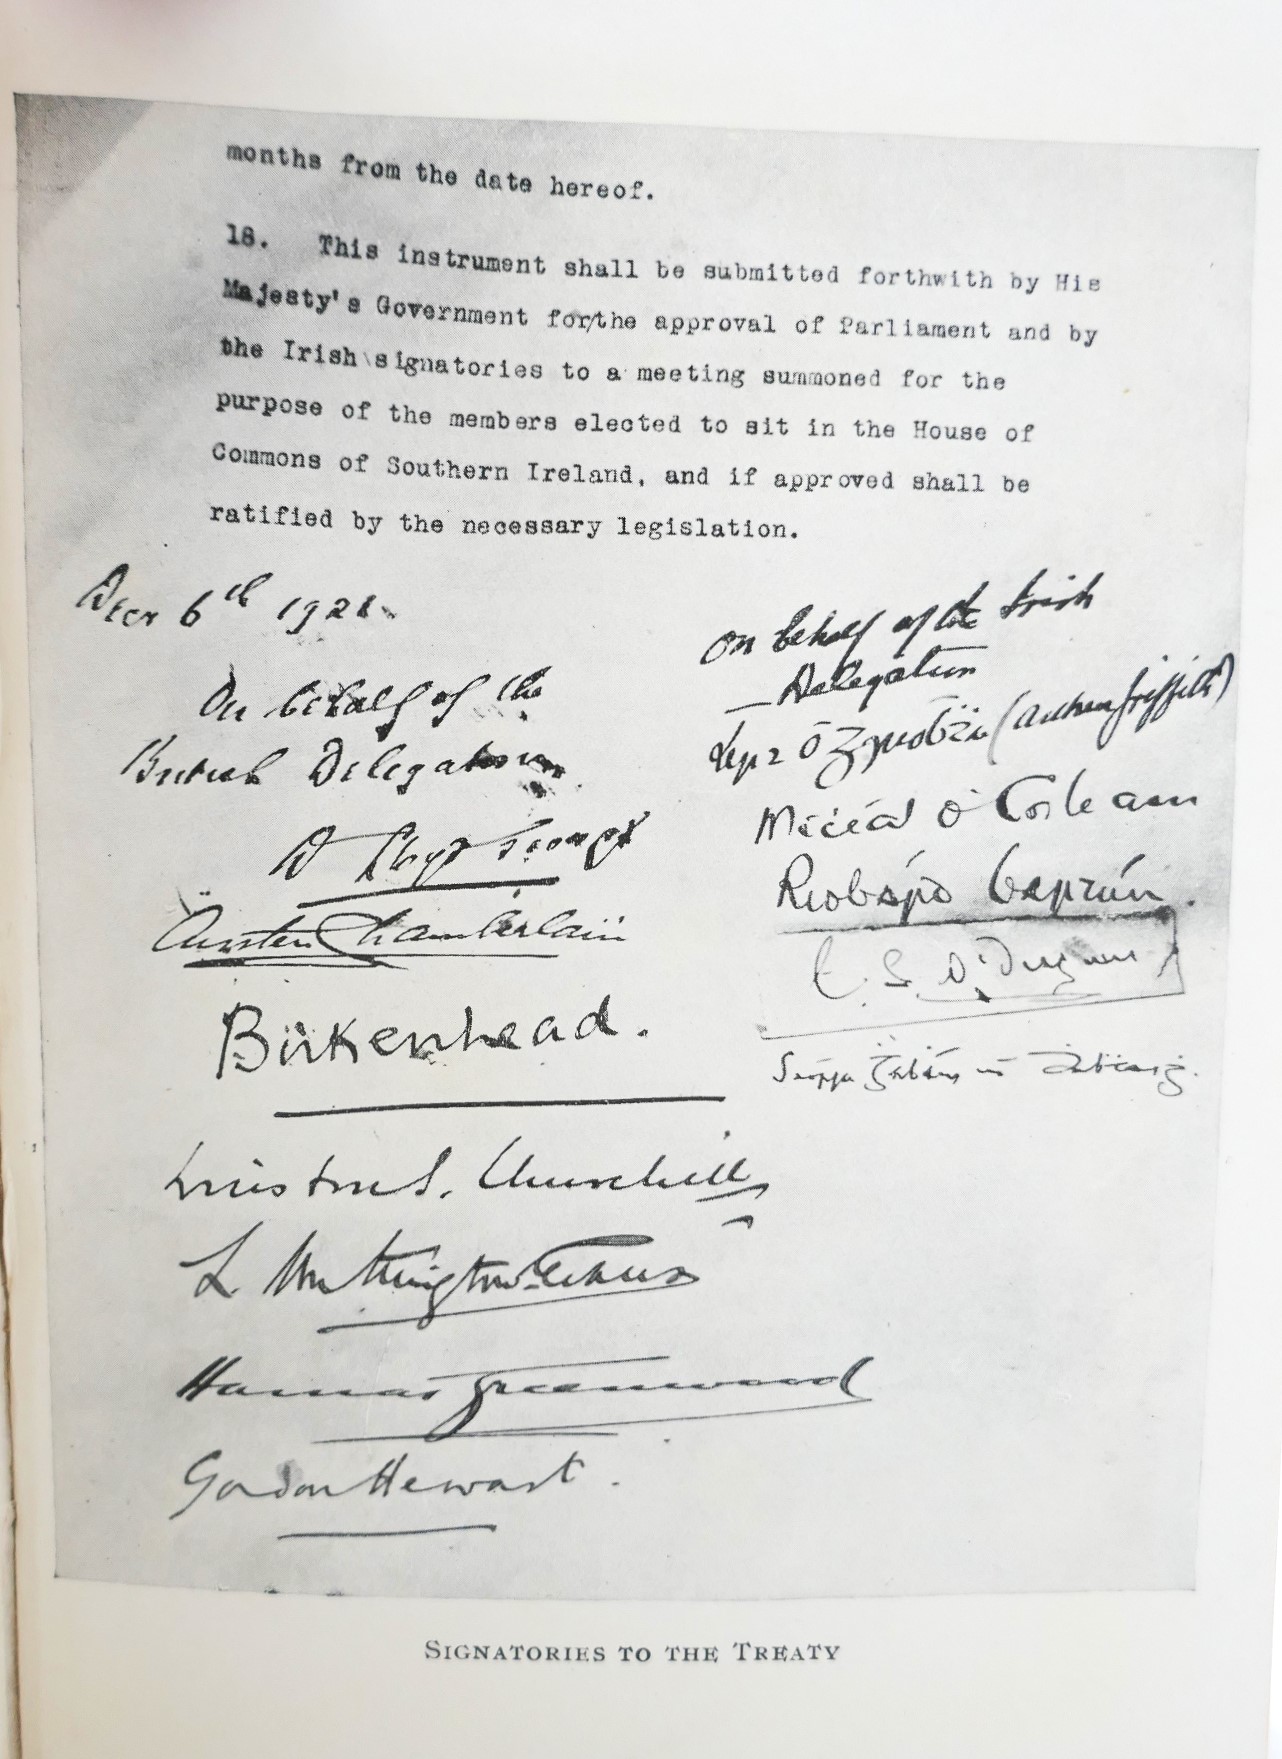 months from the date hereof.
18. This instrument shall be submitted forthwith by His
Majesty's Government for/the approval of Parliament and by
the Irish\signatories to a meeting summoned for the
purpose of the members elected to sit in the House of
Commons of Southern Ireland, and if approved shall be
ratified by the necessary legislation.
Decr 6th 1921.
On behalf of the
British Delegation
D Lloyd George
Austen Chamberlain
Birkenhead.
Winston S. Churchill
L Worthington-Evans
Hamar Greenwood
Gordon Hewart.
On behalf of the Irish
Delegation
Art Ó Gríobhtha (Arthur Griffith)
Mícéal Ó Coileain
Riobárd Bartún.
E. S. Ó Dugain
Seórsa Ġabháin uí Dhubhthaigh.
SIGNATORIES TO THE TREATY